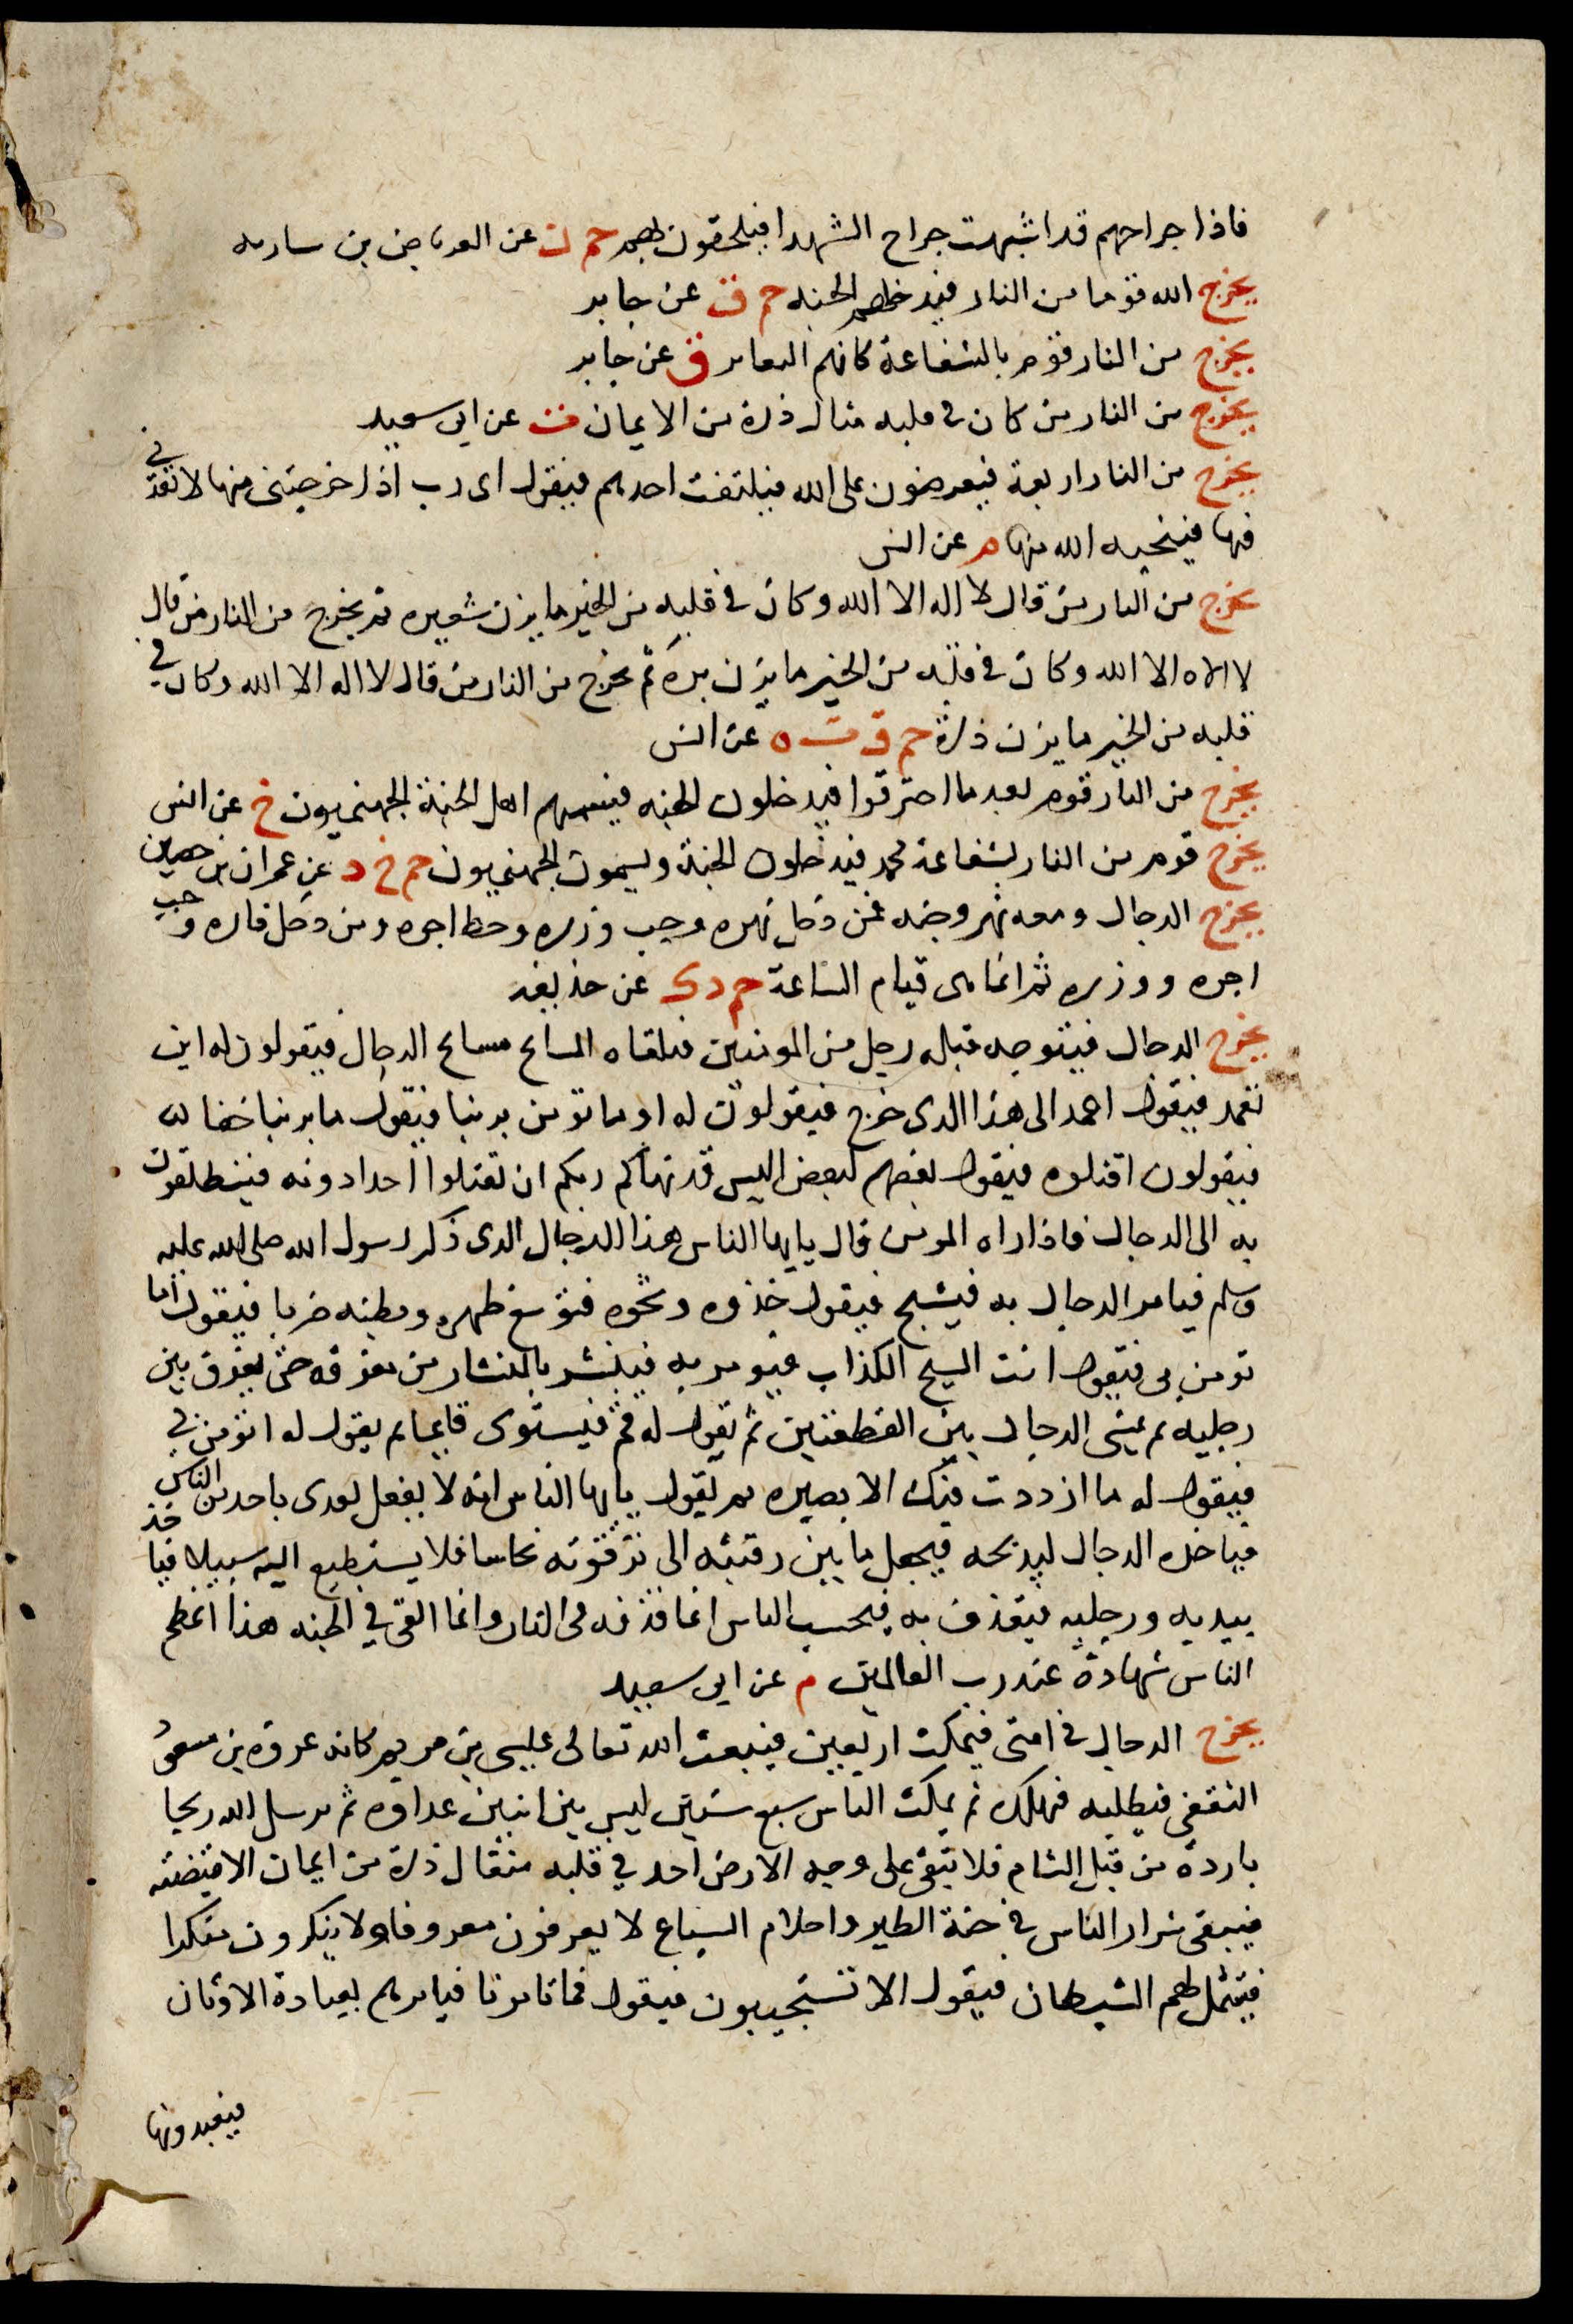 فاذا جراحهم قد اشبهت جراح الشهدا فيلحقون بهم حم ن عن العرباض بن ساريه
يخرج الله قوما من النار فيدخلهم الجنه حم ق عن جابر
يخرج من النار قوم بالشفاعة كانهم الثعارير ق عن جابر
يخرج من النار من كان في قلبه مثقال ذرة من الايمان ت عن ابي سعيد
يخرج من النار اربعة فيعرضون على الله فيلتفت احدهم فيقول اى رب اذ اخرجتنى منها لا تعدنى
فيها فينجيه الله منها م عن انس
يخرج من النار من قال لا اله الا الله وكان في قلبه من الخير ما يزن شعيره ثم يخرج من النار من قال
لا اله الا الله وكان في قلبه من الخير ما يزن برة ثم يخرج من النار من قال لا اله الا الله وكان في
قلبه من الخير ما يزن ذرة حم ق ت ه عن انس
يخرج من النار قوم بعد ما احترقوا فيدخلون الجنه فيسميهم اهل الجنة الجهنميون خ عن انس
يخرج قوم من النار بشفاعة محمد فيدخلون الجنة ويسمون الجهنميون حم خ د عن عمران بن حصين
يخرج الدجال ومعه نهر وجنه فمن دخل نهره وجب وزره وحط اجره ومن دخل ناره وجب
اجره ووزره ثم انما هى قيام الساعة حم د ك عن حذيفه
يخرج الدجال فيتوجه قبله رجل من المومنين فيلقاه المسالح مسالح الدجال فيقولون له اين
تعمد فيقول اعمد الى هذا الذى خرج فيقولون له او ما تومن بربنا فيقول ما بربنا خفا
فيقولون اقتلوه فيقول بعضهم لبعض اليس قد نهاكم ربكم ان تقتلوا احدا دونه فينطلقون
به الى الدجال فاذا راه المومن قال يايها الناس هذا الدجال الذى ذكر رسول الله صلى الله عليه
وسلم فيامر الدجال به فيشبح فيقول خذوه وشجوه فيوسع ظهره وبطنه ضربا فيقول اما
تومن بى فيقول انت المسيح الكذاب فيومر به فينشر بالمنشار من مفرقه حتى يفرق بين
رجليه ثم يمشى الدجال بين القطعتين ثم يقول له قم فيستوى قايما ثم يقول له اتومن بي
فيقول له ما ازددت فيك الا بصيره ثم يقول يايها الناس انه لا يفعل بعدى باحد من الناس
فياخذه الدجال ليذبحه فيجعل ما بين رقبته الى ترقوته نحاسا فلا يستطيع اليه سبيلا فياخذ
بيديه ورجليه فيقذف به فيحسب الناس انما قذفه فى النار وانما القى في الجنه هذا اعظم
الناس شهادة عند رب العالمين م عن ابي سعيد
يخرج الدجال في امتى فيمكث اربعين فيبعث الله تعالى عيسى بن مريم كانه عروة بن مسعود
الثقفى فيطلبه فيهلكه ثم يمكث الناس سبع سنين ليس بين اثنين عداوه ثم يرسل الله ريحا
باردة من قبل الشام فلا يبقى على وجه الارض احد في قلبه مثقال ذرة من ايمان الا قبضته
فيبقى شرار الناس في خفة الطير واحلام السباع لا يعرفون معروفا ولا ينكرون منكرا
فيتمثل لهم الشيطان فيقول الا تستجيبون فيقول فما تامرنا فيامرهم بعبادة الاوثان
فيعبدونها